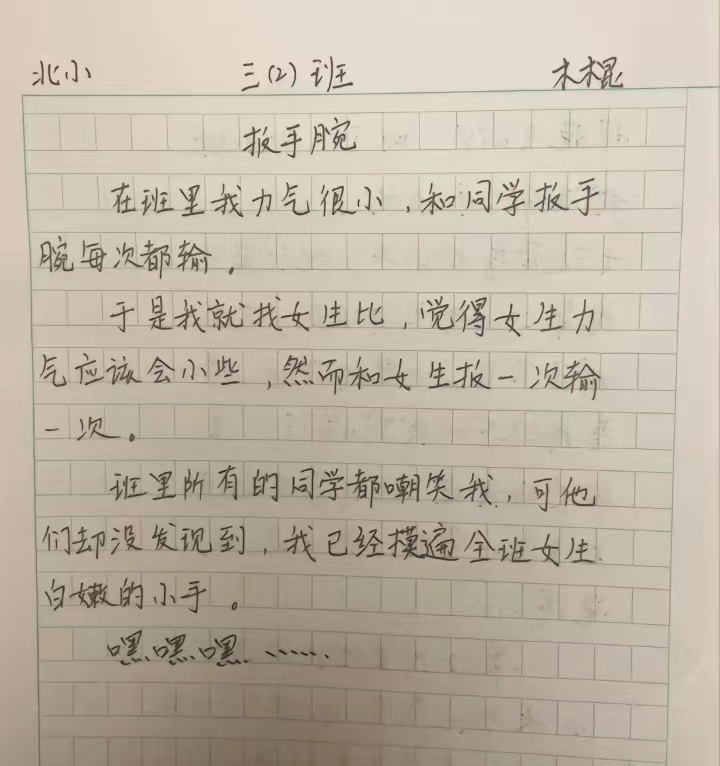 北小 三(2)班 木棍
扳手腕
在班里我力气很小，和同学扳手
腕每次都输。
于是我就找女生比，觉得女生力
气应该会小些，然而和女生扳一次输
一次。
班里所有的同学都嘲笑我，可他
们却没发现到，我已经摸遍全班女生
白嫩的小手。
嘿、嘿、嘿、……